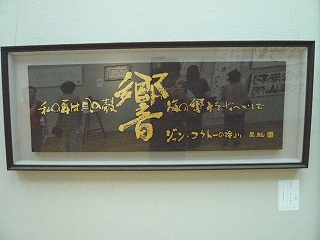 私の耳は貝の殻
響
海の響をなつかしむ
ジャン・コクトーの詩より